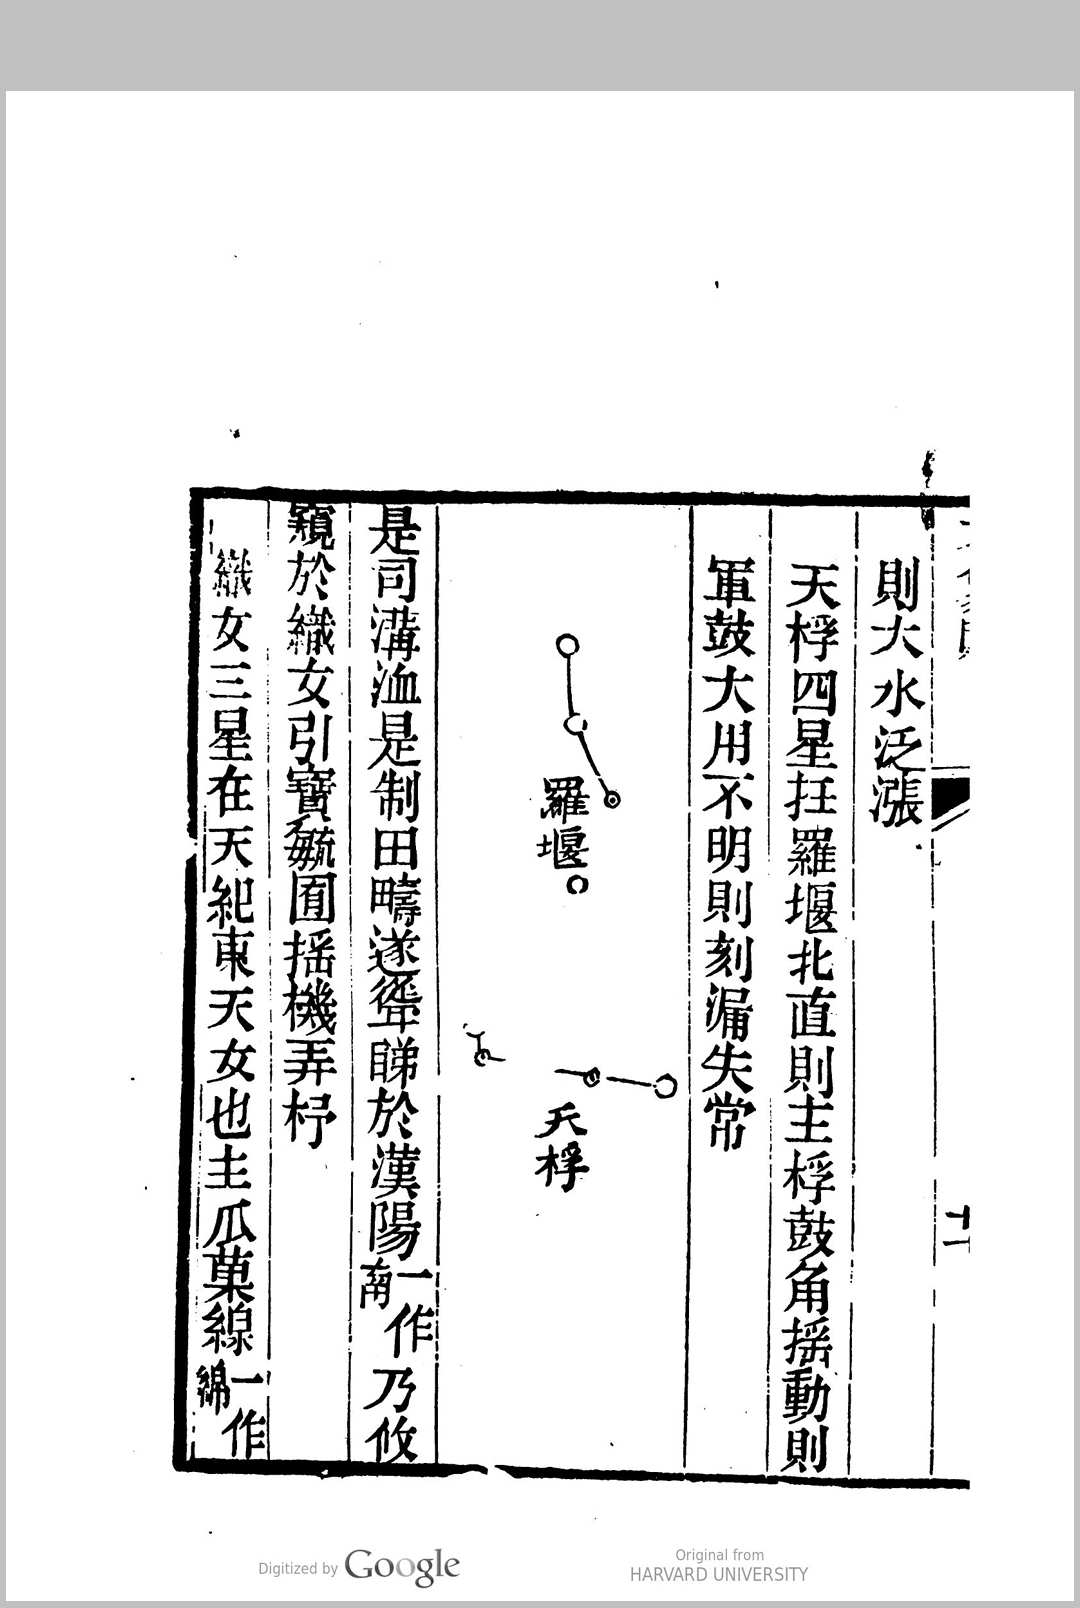 則大水泛漲
天桴四星在羅堰北直則主桴鼓角揺動則
軍鼓大用不明則刻漏失常
羅堰
天桴
是司溝洫是制田疇遂聳睇於漢陽一作南乃攸
窺於織女引寶毓囿揺機弄杼
織女三星在天紀東天女也主瓜菓線一作綿
十一
Digitized by Google
Original from
HARVARD UNIVERSITY